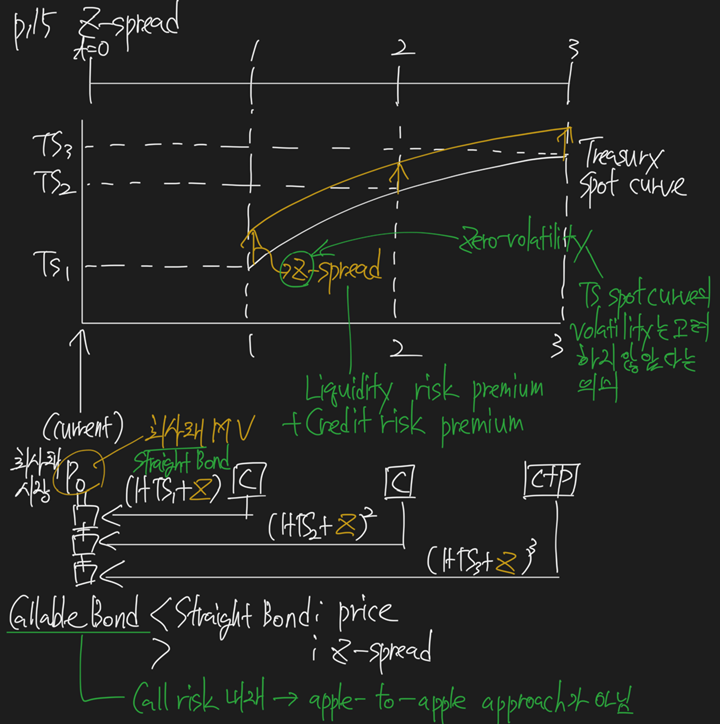 p.15 Z-spread
t=0
1 2 3
TS3
TS2
TS1
Treasury
spot curve
Zero-volatility
Z-spread
TS spot curve의
volatility는 고려
하지 않았다는
의미
1 2 3
Liquidity risk premium
+ Credit risk premium
(current)
회사채 MV
Straight Bond
회사채
시장
P0
(1+TS1+Z) C
(1+TS2+Z)² C
(1+TS3+Z)³ C+P
Callable Bond < Straight Bond ; price
> ; Z-spread
Call risk 내재 → apple-to-apple approach가 아님